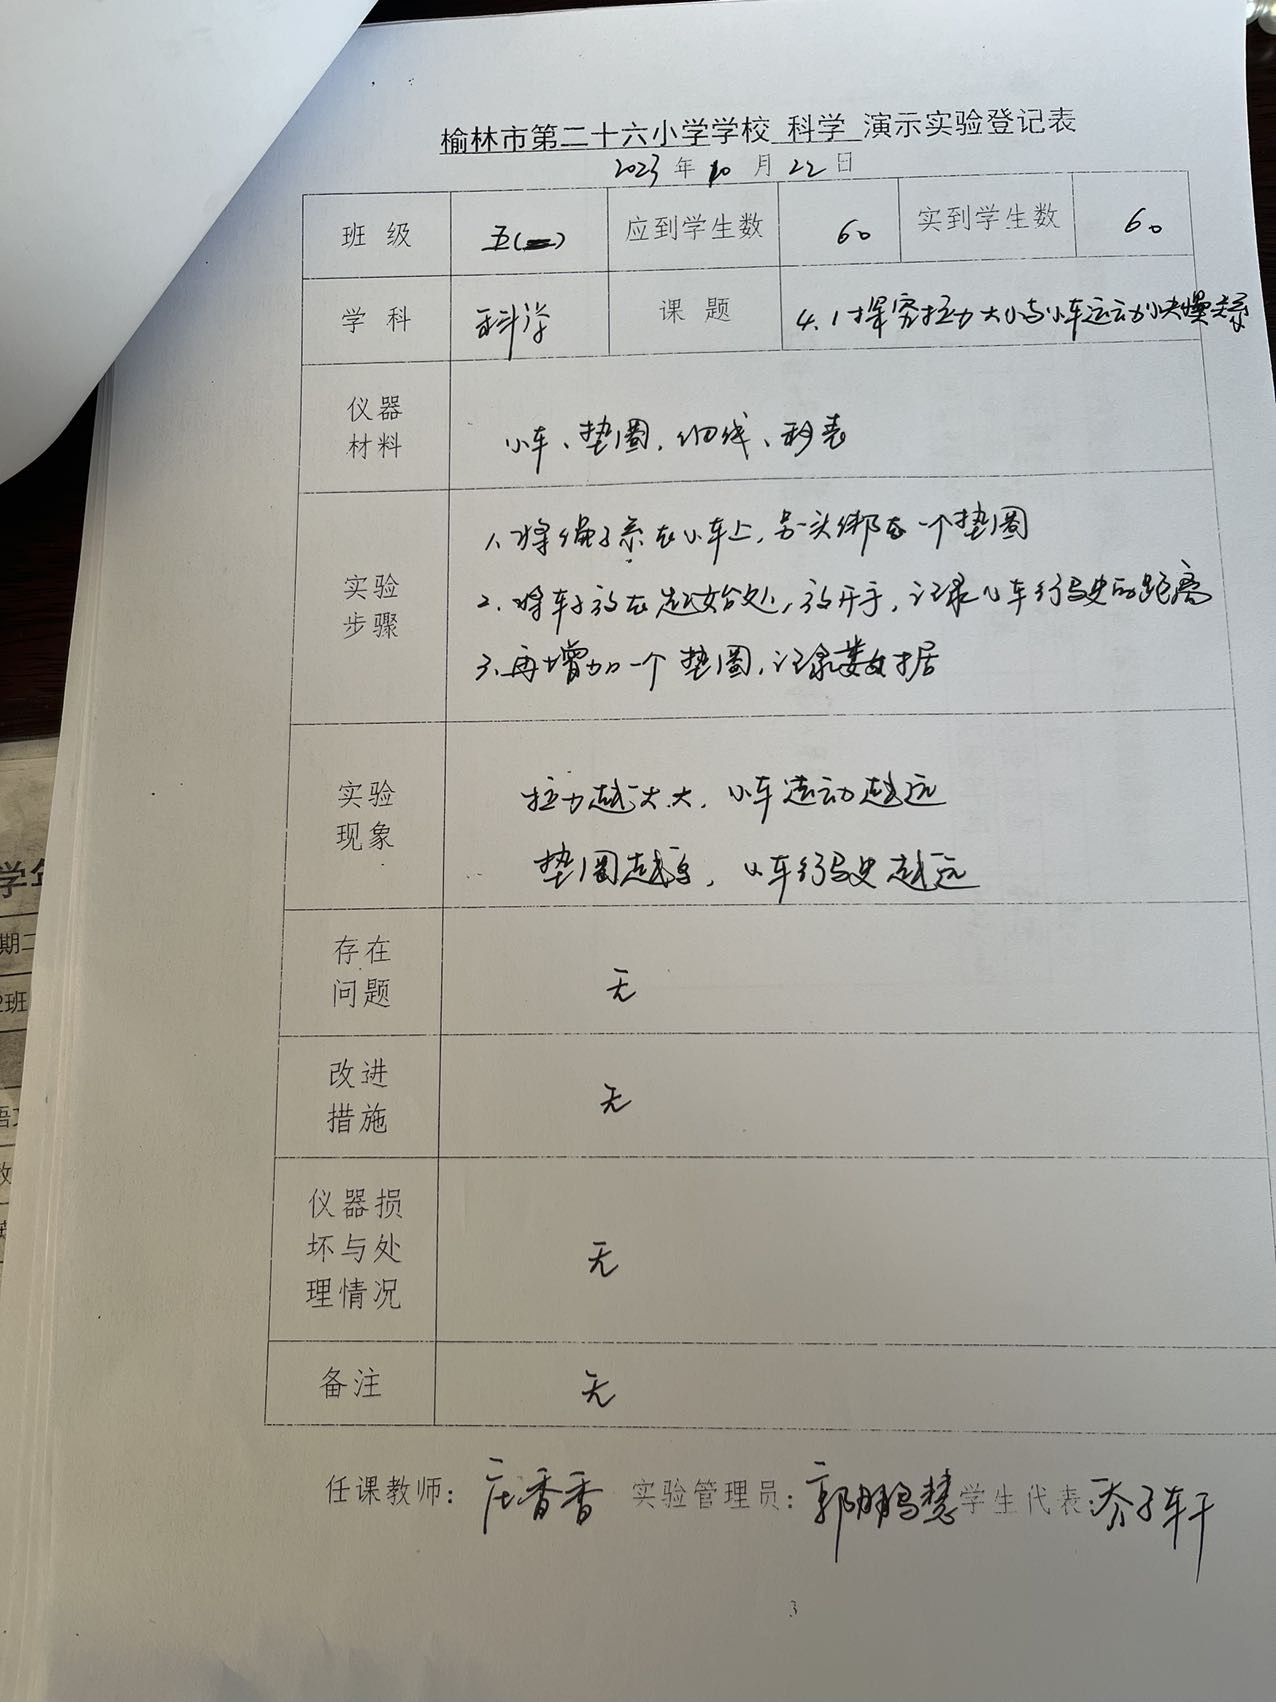 榆林市第二十六小学学校 科学 演示实验登记表
2023 年 10 月 22 日
班级 五(二) 应到学生数 60 实到学生数 60
学科 科学 课题 4.1探究拉力大小与小车运动快慢关系
仪器
材料
小车、垫圈、细线、秒表
实验
步骤
1、将绳子系在小车上,另一头绑在一个垫圈
2、将车子放在起始处,放开手,记录小车行驶的距离
3、再增加一个垫圈,记录数据
实验
现象
拉力越大大,小车运动越远
垫圈越多,小车行驶越远
存在
问题
无
改进
措施
无
仪器损
坏与处
理情况
无
备注
无
任课教师: 庄香香 实验管理员: 郭鹏慧 学生代表: 乔子轩
3
学年
期二
2班